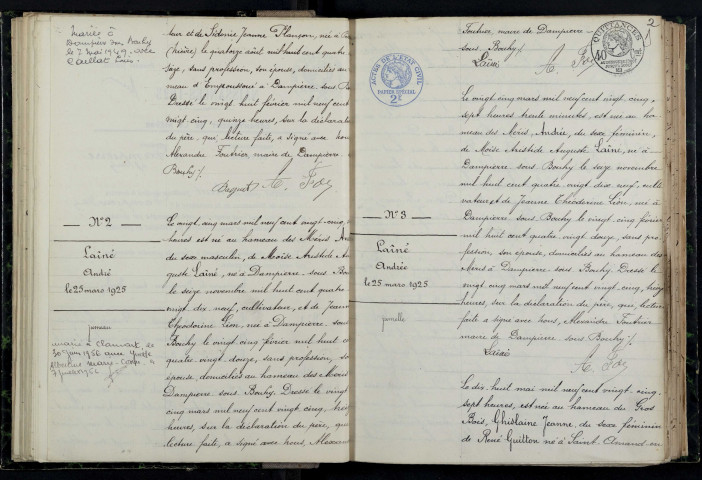 mariés à
Dampierre sous Bouhy
le 7 mai 1949 avec
Caillat
teur et de Sidonie Jeanne Plançon, née à
(Nièvre) le quatorze août mil huit cent quatre
sans profession, son épouse, domiciliés au
meau d' à Dampierre sous
Dressé le vingt huit février mil neuf cent
vingt cinq, quinze heures, sur la déclaration
du père, qui lecture faite, a signé avec nous
Alexandre Foutrier, maire de Dampierre
Bouhy /.
N° 2
Lainé
André
le 25 mars 1925
jumeau
marié à Clamart, le
30 juin 1956 avec
Le vingt cinq mars mil neuf cent vingt-cinq
heures est né au hameau des Méris
du sexe masculin, de Moïse Aristide
guste Lainé, né à Dampierre sous
le seize novembre mil huit cent quatre
vingt dix neuf, cultivateur, et de Jeanne
Théodorine Lion, née à Dampierre sous
Bouhy le vingt cinq février mil huit
quatre vingt douze, sans profession, son
épouse domiciliés au hameau des Méris
Dampierre sous Bouhy. Dressé le vingt
cinq mars mil neuf cent vingt cinq,
heures, sur la déclaration du père, qui
lecture faite, a signé avec nous, Alexandre
Foutrier, maire de Dampierre
sous Bouhy /.
Lainé
ACTES DE L'ETAT CIVIL
PAPIER SPECIAL
2F
QUITTANCES
2
N° 3
Lainé
Andrée
le 25 mars 1925
jumelle
Le vingt cinq mars mil neuf cent vingt cinq,
sept heures trente minutes, est née au ha
meau des Méris, Andrée, du sexe féminin,
de Moïse Aristide Auguste Lainé, né à
Dampierre sous Bouhy le seize novembre
mil huit cent quatre vingt dix neuf, culti
vateur et de Jeanne Théodorine Lion, née à
Dampierre sous Bouhy le vingt cinq février
mil huit cent quatre vingt douze, sans pro
fession, son épouse, domiciliés au hameau des
Méris à Dampierre sous Bouhy. Dressé le
vingt cinq mars mil neuf cent vingt cinq,
heures, sur la déclaration du père, qui, lecture
faite a signé avec nous, Alexandre Foutrier
maire de Dampierre sous Bouhy /.
Lainé
Le dix huit mai mil neuf cent vingt cinq,
sept heures, est née au hameau du Gros
Bois, Ghislaine Jeanne, du sexe féminin
de René Guitton né à Saint Amand en